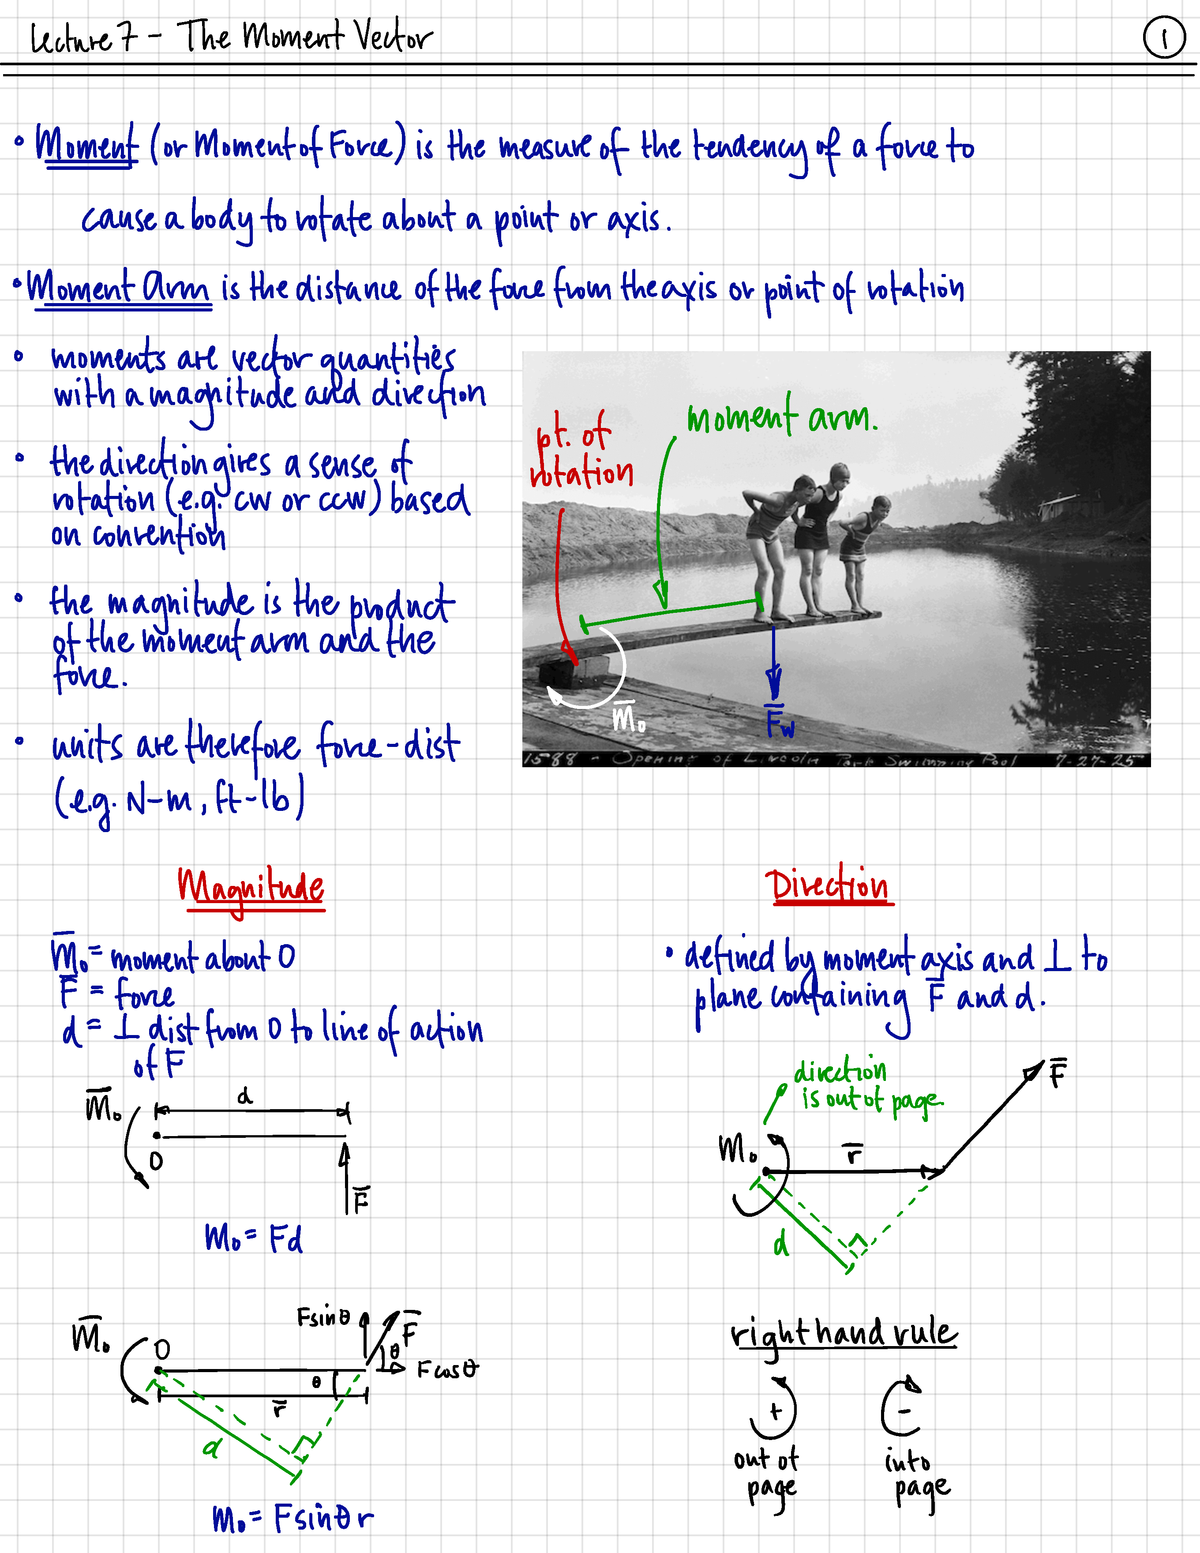 Lecture 7 - The Moment Vector
1
• Moment (or Moment of Force) is the measure of the tendency of a force to
cause a body to rotate about a point or axis.
• Moment Arm is the distance of the force from the axis or point of rotation
• moments are vector quantities
with a magnitude and direction
• the direction gives a sense of
rotation (e.g. cw or ccw) based
on convention
• the magnitude is the product
of the moment arm and the
force.
• units are therefore force-dist
(e.g. N-m, ft-lb)
pt. of
rotation
moment arm.
M̅₀
F̅w
1588 - Opening of Lincoln Park Swimming Pool 7-27-25
Magnitude
M̅₀ = moment about O
F̅ = force
d = ⊥ dist from O to line of action
of F
M̅₀
d
O
F̅
M₀ = Fd
M̅₀
O
Fsinθ
F̅
θ
Fcosθ
θ
r̅
d
M₀ = Fsinθr
Direction
• defined by moment axis and ⊥ to
plane containing F̅ and d.
direction
is out of page
F̅
M₀
r̅
d
right hand rule
+
-
out of
page
into
page